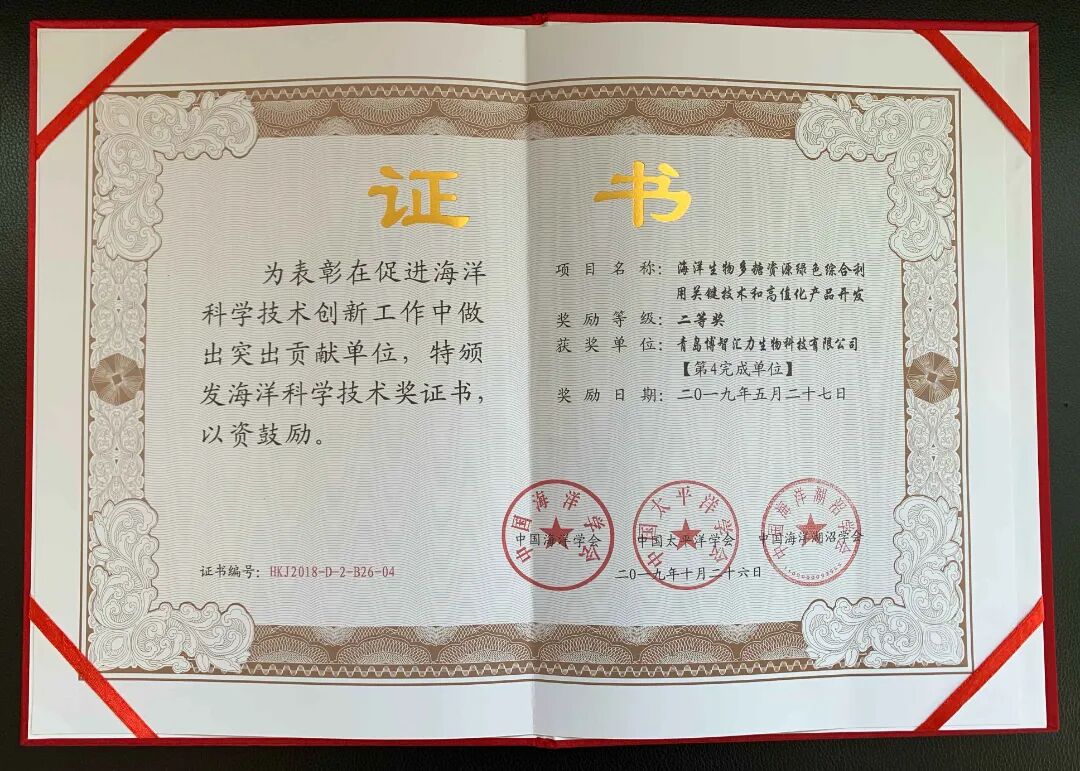 证 书
为表彰在促进海洋
科学技术创新工作中做
出突出贡献单位，特颁
发海洋科学技术奖证书，
以资鼓励。
证书编号：HKJ2018-D-2-B26-04
项目名称：海洋生物多糖资源绿色综合利
用关键技术和高值化产品开发
奖励等级：二等奖
获奖单位：青岛博智汇力生物科技有限公司
【第4完成单位】
奖励日期：二〇一九年五月二十七日
中国海洋学会
中国太平洋学会
中国海洋湖沼学会
中国海洋学会 中国太平洋学会 中国海洋湖沼学会
二〇一九年十月二十六日